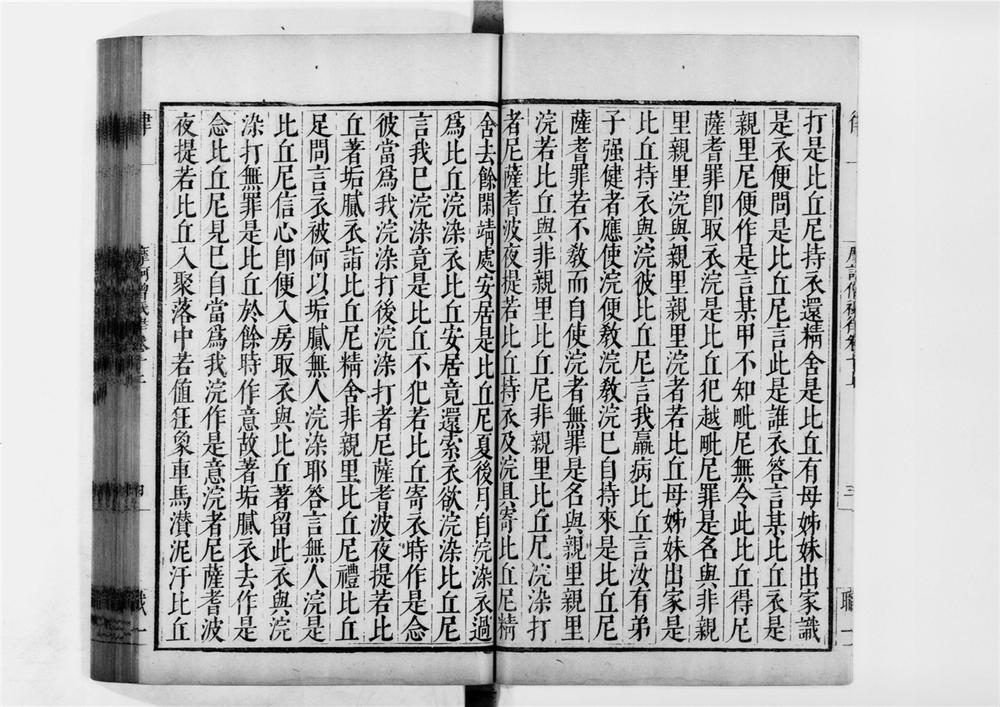 打是比丘尼持衣還精舍是比丘有母姊妹出家識
是衣便問是比丘尼言此是誰衣答言某比丘衣是
親里尼便作是言某甲不知毗尼無令此比丘得尼
薩耆罪即取衣浣是比丘犯越毗尼罪是名與非親
里親里浣與親里親里浣者若比丘母姊妹出家是
比丘持衣與浣彼比丘尼言我羸病比丘言汝有弟
子强健者應使浣便教浣教浣已自持來是比丘尼
薩耆罪若不教而自使浣者無罪是名與親里親里
浣若比丘與非親里比丘尼非親里比丘尼浣染打
者尼薩耆波夜提若比丘持衣及浣具寄比丘尼精
舍去餘閑靖處安居是比丘尼夏後月自浣染衣過
爲比丘浣染衣比丘安居竟還索衣欲浣染比丘尼
言我已浣染竟是比丘不犯若比丘寄衣時作是念
彼當爲我浣染打後浣染打者尼薩耆波夜提若比
丘著垢膩衣詣比丘尼精舍非親里比丘尼禮比丘
足問言衣被何以垢膩無人浣染耶答言無人浣是
比丘尼信心即便入房取衣與比丘著留此衣與浣
染打無罪是比丘於餘時作意故著垢膩衣去作是
念比丘尼見已自當爲我浣作是意浣者尼薩耆波
夜提若比丘入聚落中若值狂象車馬濽泥汙比丘
律